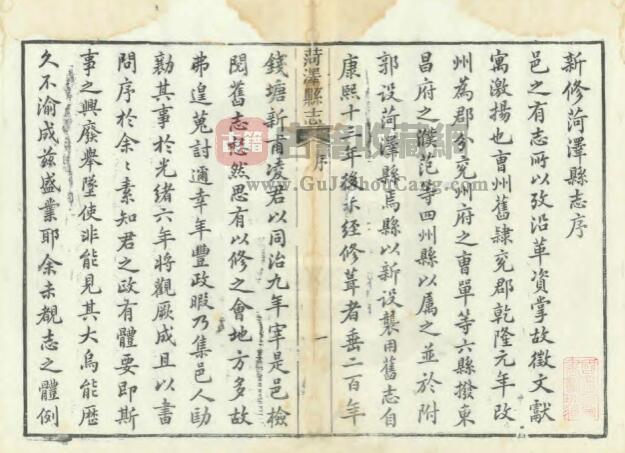 新修菏澤縣志序
邑之有志所以攷沿革資掌故徵文獻
寓激揚也曹州舊隸兖郡乾隆元年改
州為郡分兖州府之曹單等六縣撥東
昌府之濮范等四州縣以屬之並於附
郭設菏澤縣焉縣以新設襲用舊志自
康熙十三年後未經修葺者垂二百年
菏澤縣志
序
一
錢塘新甫凌君以同治九年宰是邑檢
閱舊志慭然思有以修之會地方多故
弗遑蒐討邇幸年豐政暇乃集邑人勖
勷其事於光緒六年將觀厥成且以書
問序於余余素知君之政有體要即斯
事之興廢舉墜使非能見其大烏能歷
久不渝成茲盛業耶余未覩志之體例
古籍收藏網
www.GuJiShouCang.com